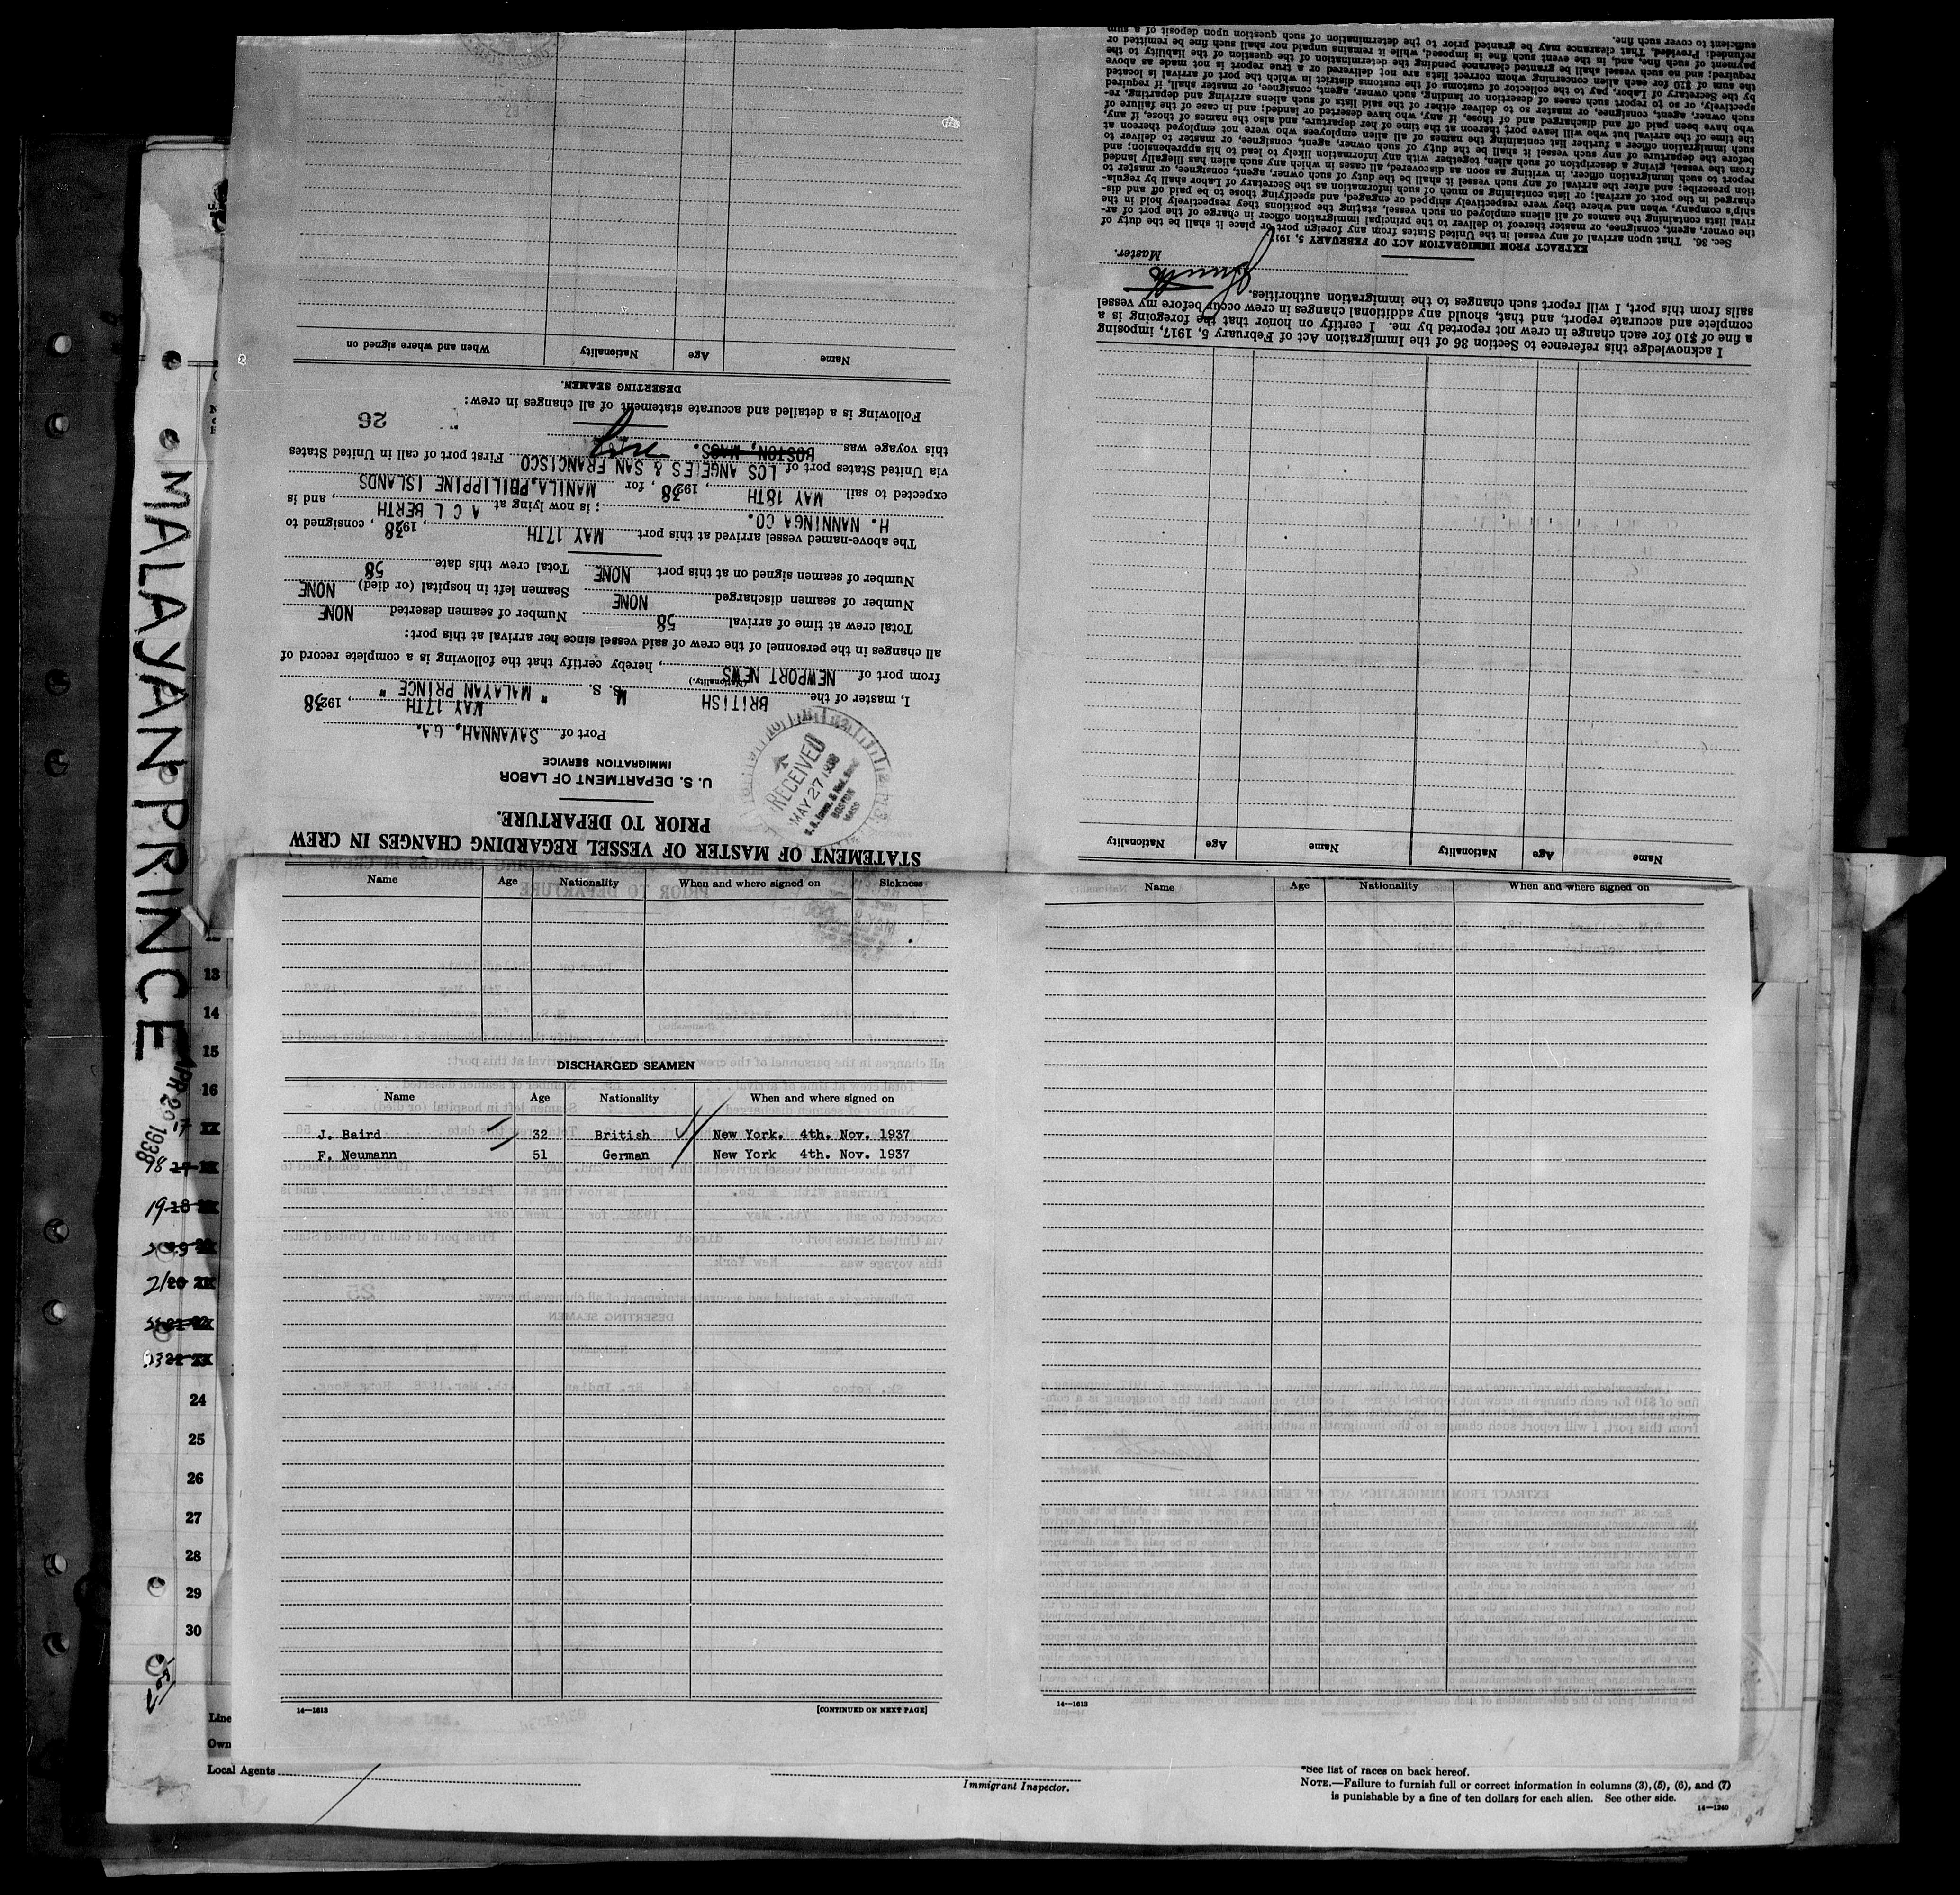 MALAYAN PRINCE
APR 20 1938
STATEMENT OF MASTER OF VESSEL REGARDING CHANGES IN CREW
PRIOR TO DEPARTURE.
U. S. DEPARTMENT OF LABOR
IMMIGRATION SERVICE
RECEIVED
MAY 27 1938
BOSTON
MASS
Port of SAVANNAH, GA.
MAY 17TH, 1938
I, master of the BRITISH M. S. " MALAYAN PRINCE "
(Nationality.)
from port of NEWPORT NEWS, hereby certify that the following is a complete record of
all changes in the personnel of the crew of said vessel since her arrival at this port:
Total crew at time of arrival 58 Number of seamen deserted NONE
Number of seamen discharged NONE Seamen left in hospital (or died) NONE
Number of seamen signed on at this port NONE Total crew this date 58
The above-named vessel arrived at this port MAY 17TH, 1938, consigned to
H. NANNINGA CO.; is now lying at A C L BERTH, and is
expected to sail MAY 18TH, 1938, for MANILA, PHILIPPINE ISLANDS
via United States port of LOS ANGELES & SAN FRANCISCO First port of call in United States
this voyage was BOSTON, MASS.
Following is a detailed and accurate statement of all changes in crew:
26
DESERTING SEAMEN.
Name Age Nationality When and where signed on
Name Age Nationality Name Age Nationality
I acknowledge this reference to Section 36 of the Immigration Act of February 5, 1917, imposing
a fine of $10 for each change in crew not reported by me. I certify on honor that the foregoing is a
complete and accurate report, and that, should any additional changes in crew occur before my vessel
sails from this port, I will report such changes to the immigration authorities.
Master.
EXTRACT FROM IMMIGRATION ACT OF FEBRUARY 5, 1917
Sec. 36. That upon arrival of any vessel in the United States from any foreign port or place it shall be the duty of
the owner, agent, consignee, or master thereof to deliver to the principal immigration officer in charge of the port of ar-
rival lists containing the names of all aliens employed on such vessel, stating the positions they respectively hold in the
ship's company, when and where they were respectively shipped or engaged, and specifying those to be paid off and dis-
charged in the port of arrival; or lists containing so much of such information as the Secretary of Labor shall by regula-
tion prescribe; and after the arrival of any such vessel it shall be the duty of such owner, agent, consignee, or master to
report to such immigration officer, in writing as soon as discovered, all cases in which any such alien has illegally landed
from the vessel, giving a description of such alien, together with any information likely to lead to his apprehension; and
before the departure of any such vessel it shall be the duty of such owner, agent, consignee, or master to deliver to
such immigration officer a further list containing the names of all alien employees who were not employed thereon at
the time of the arrival but who will leave port thereon at the time of her departure, and also the names of those, if any,
who have been paid off and discharged and of those, if any, who have deserted or landed; and in case of the failure of
such owner, agent, consignee, or master so to deliver either of the said lists of such aliens arriving and departing, re-
spectively, or so to report such cases of desertion or landing, such owner, agent, consignee, or master shall, if required
by the Secretary of Labor, pay to the collector of customs of the customs district in which the port of arrival is located
the sum of $10 for each alien concerning whom correct lists are not delivered or a true report is not made as above
required; and no such vessel shall be granted clearance pending the determination of the question of the liability to the
payment of such fine, and, in the event such fine is imposed, while it remains unpaid nor shall such fine be remitted or
refunded: Provided, That clearance may be granted prior to the determination of such question upon deposit of a sum
sufficient to cover such fine.
Name Age Nationality When and where signed on Sickness
DISCHARGED SEAMEN
Name Age Nationality When and where signed on
J. Baird 32 British New York. 4th. Nov. 1937
F. Neumann 51 German New York 4th. Nov. 1937
14—1613 [CONTINUED ON NEXT PAGE]
Name Age Nationality When and where signed on
14—1613
13
14
15
16
17
18
19
21
24
25
26
27
28
29
30
Line
Own
Local Agents
Immigrant Inspector.
*See list of races on back hereof.
NOTE.—Failure to furnish full or correct information in columns (3), (5), (6), and (7)
is punishable by a fine of ten dollars for each alien. See other side.
14—1240